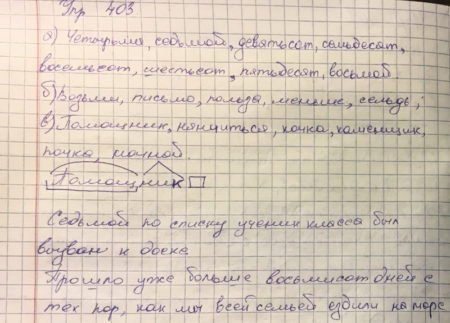 Упр 403
а) Четырьмя, седьмой, девятьсот, семьдесят,
восемьсот, шестьсот, пятьдесят, восьмой.
б) Возьми, письмо, польза, меньше, сельдь;
в) Помощник, нянчиться, ночка, каменщик,
почка, мочной.
Помощник
Седьмой по списку ученик класса был
вызван к доске.
Прошло уже больше восьмисот дней с
тех пор, как мы всей семьей ездили на море